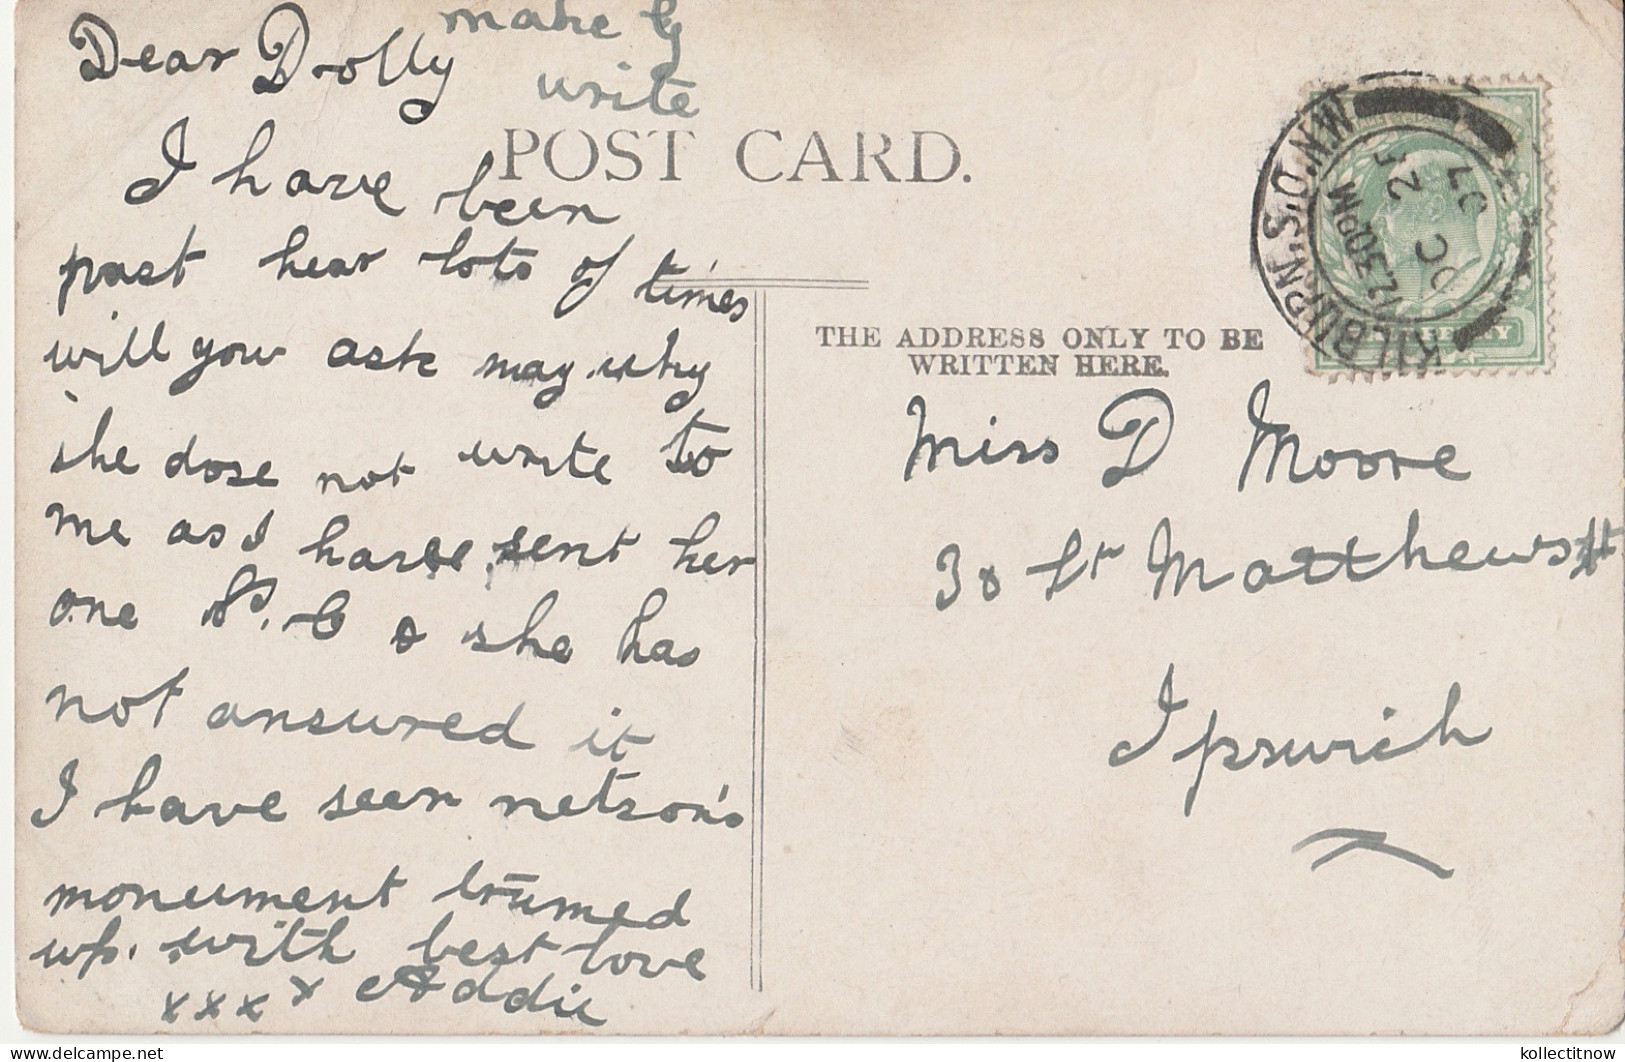 make G
write
Dear Dolly
I have been
past hear lots of times
will you ask may why
she dose not write to
me as I have sent her
one P.C & she has
not ansured it
I have seen netson's
monument trumed
up. with best love
xxxx Addie
POST CARD.
THE ADDRESS ONLY TO BE
WRITTEN HERE.
Miss D Moore
30 St Matthews st
Ipswich
KILBURN.S.O.N.W.
12.30PM
OC 25
07
kollectitnow